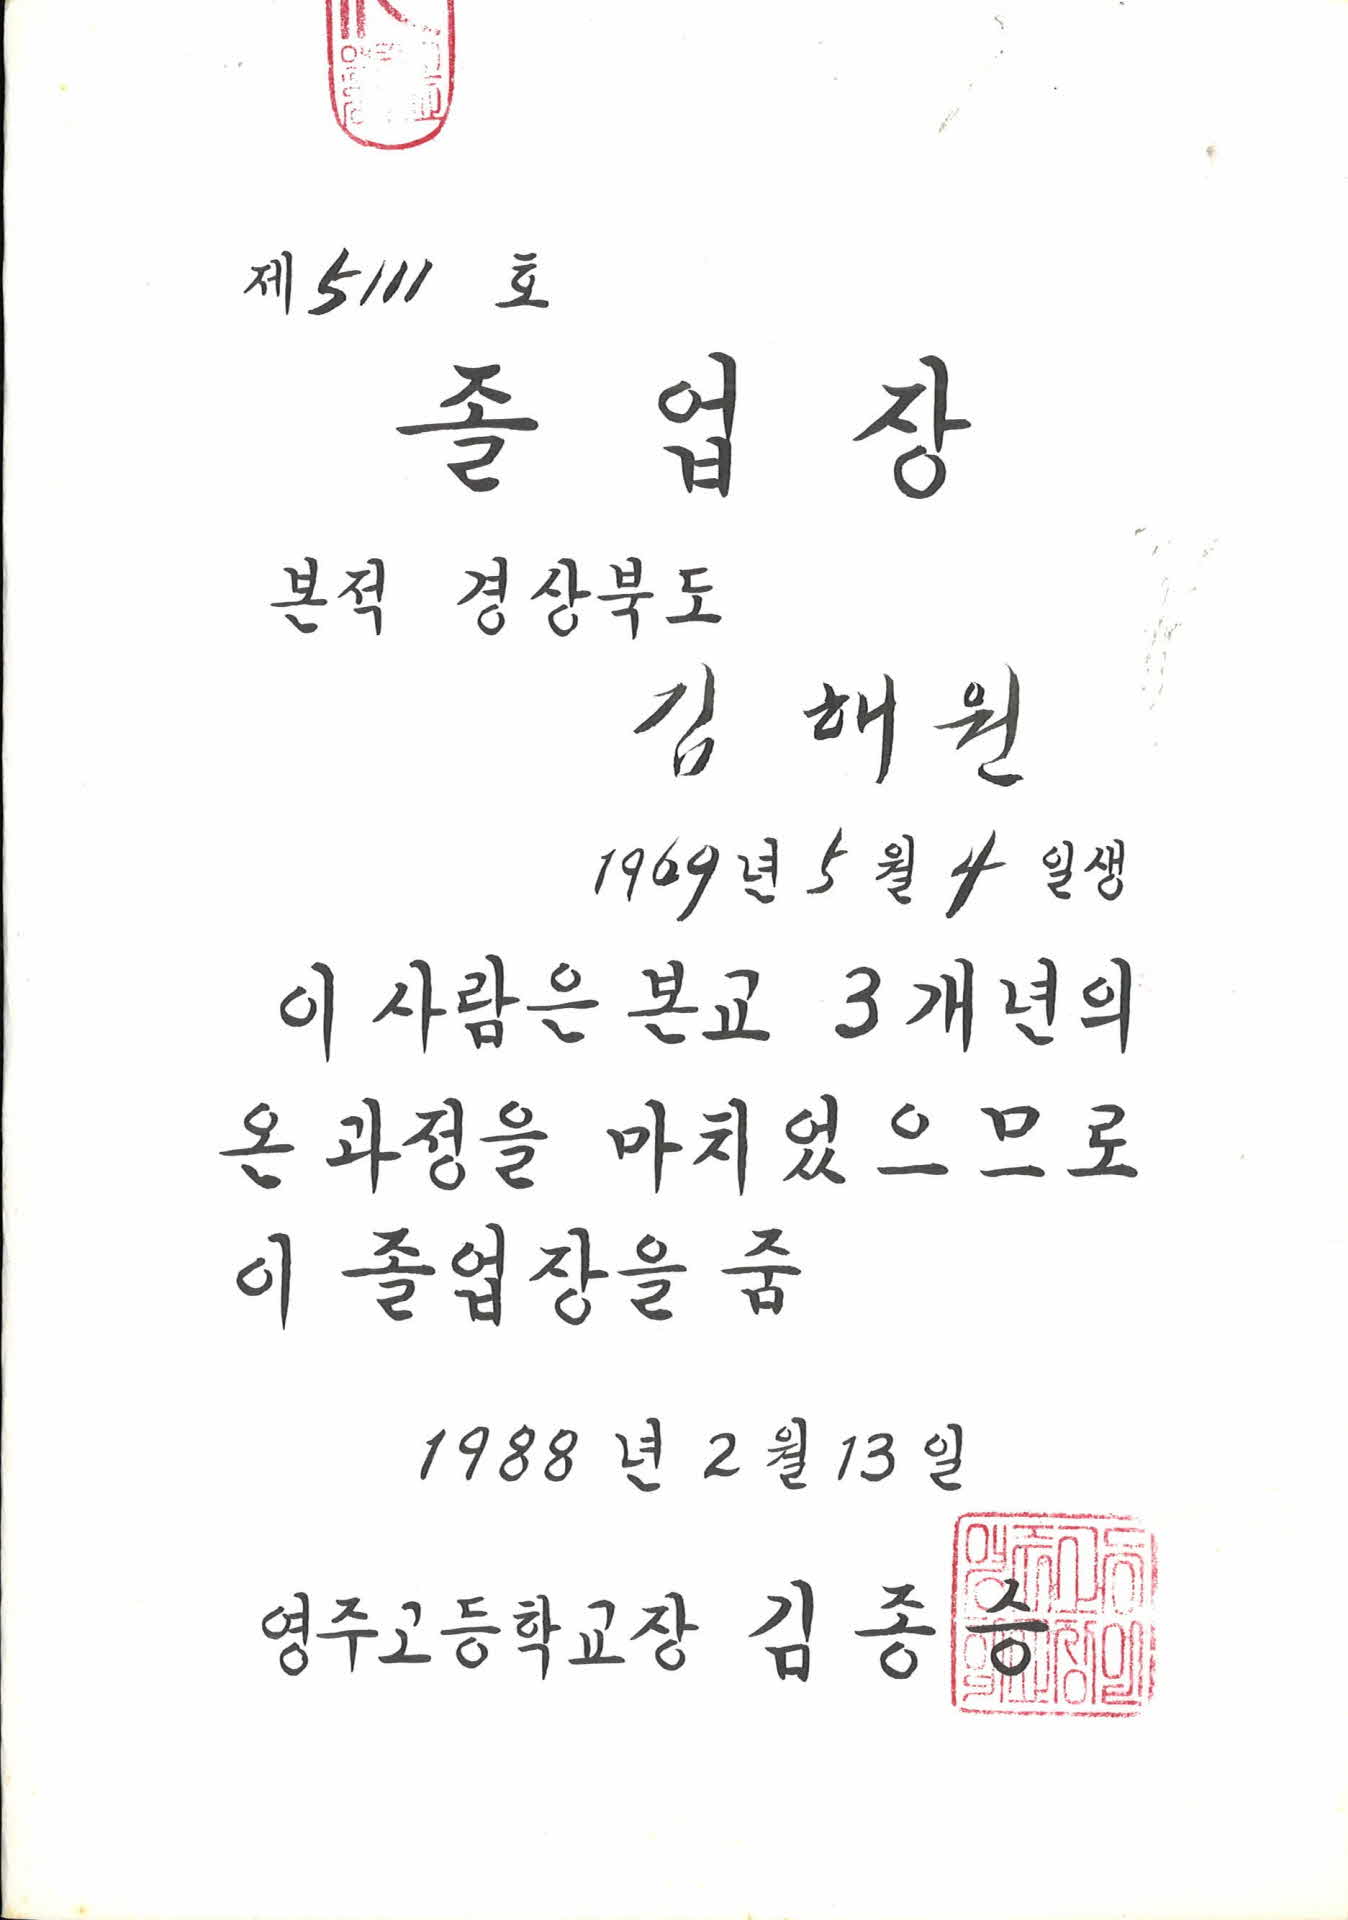 제 5111 호
졸업장
본적 경상북도
김해원
1969년 5월 4일생
이 사람은 본교 3개년의
온 과정을 마치었으므로
이 졸업장을 줌
1988년 2월 13일
영주고등학교장 김종승
영주고등
학교장인